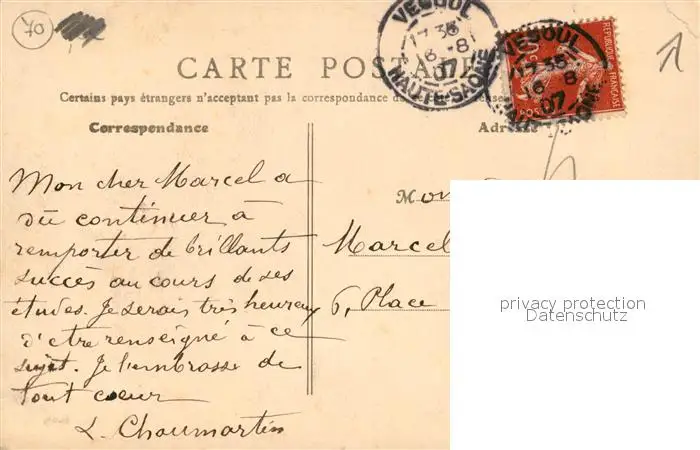 70
VESOUL
17 35
16 - 8
07
HAUTE-SAÔNE
VESOUL
17 35
16 - 8
07
REPUBLIQUE FRANÇAISE
CARTE POSTALE
Certains pays étrangers n'acceptant pas la correspondance
Correspondance
Adresse
Mon cher Marcel a
dû continuer à
remporter de brillants
succès au cours de ses
études. Je serais très heureux
d'etre renseigné à ce
sujet. Je l'embrasse de
tout coeur
L. Chaumartin
Mon
Marcel
6, Place
privacy protection
Datenschutz